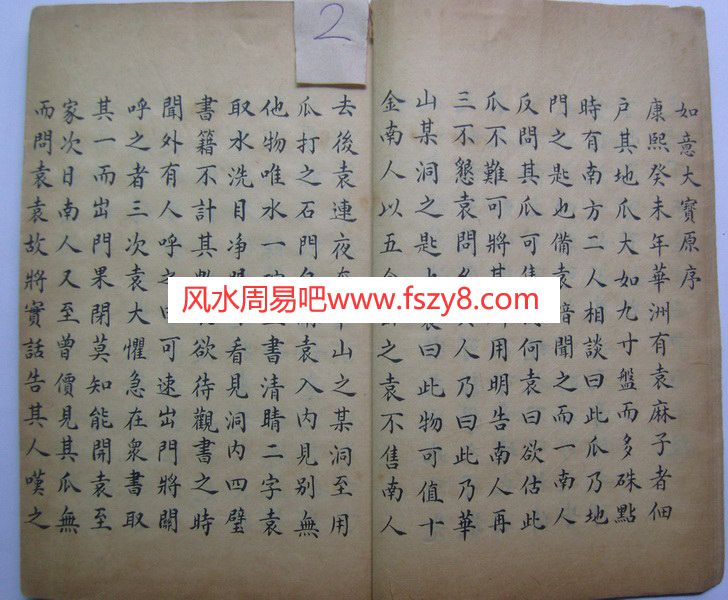 2
如意大寶原序
康熙癸未年華洲有袁麻子者佃
戶其地瓜大如九寸盤而多硃點
時有南方二人相談曰此瓜乃地
門之匙也備袁暗聞之而一南人
反問其瓜可售何袁曰欲估此
瓜不難可將其用明告南人再
三不懇袁問人乃曰此乃華
山某洞之匙袁曰此物可值十
金南人以五之袁不售南人
去後袁連夜山之某洞至用
瓜打之石門袁入內見別無
他物唯水一書清睛二字袁
取水洗目净看見洞內四璧
書籍不計其欲待觀書之時
聞外有人呼曰可速出門將關
呼之者三次袁大懼急在衆書取
其一而出門果閉莫知能開袁至
家次日南人又至曾價見其瓜無
而問袁袁故將實話告其人嘆之
风水周易吧www.fszy8.com